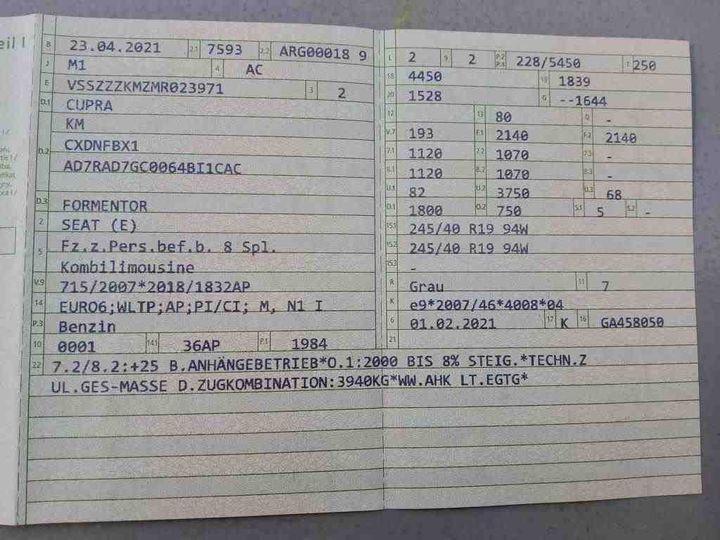 eil I
B 23.04.2021 2.1 7593 2.2 ARG00018 9
J M1 4 AC
E VSSZZZKMZMR023971 3 2
D.1 CUPRA
D.2 KM
CXDNFBX1
AD7RAD7GC0064BI1CAC
D.3 FORMENTOR
2 SEAT (E)
5 Fz.z.Pers.bef.b. 8 Spl.
Kombilimousine
V.9 715/2007*2018/1832AP
14 EURO6;WLTP;AP;PI/CI; M, N1 I
P.3 Benzin
10 0001 14.1 36AP P.1 1984
L 2 9 2 P.2 P.4 228/5450 T 250
18 4450 19 1839
20 1528 G --1644
12 13 80 Q -
V.7 193 F.1 2140 F.2 2140
7.1 1120 7.2 1070 7.3 -
8.1 1120 8.2 1070 8.3 -
U.1 82 U.2 3750 U.3 68
O.1 1800 O.2 750 S.1 5 S.2 -
15.1 245/40 R19 94W
15.2 245/40 R19 94W
-
R Grau 11 7
K e9*2007/46*4008*04
6 01.02.2021 17 K 16 GA458050
21
22 7.2/8.2:+25 B.ANHÄNGEBETRIEB*O.1:2000 BIS 8% STEIG.*TECHN.Z
UL.GES-MASSE D.ZUGKOMBINATION:3940KG*WW.AHK LT.EGTG*